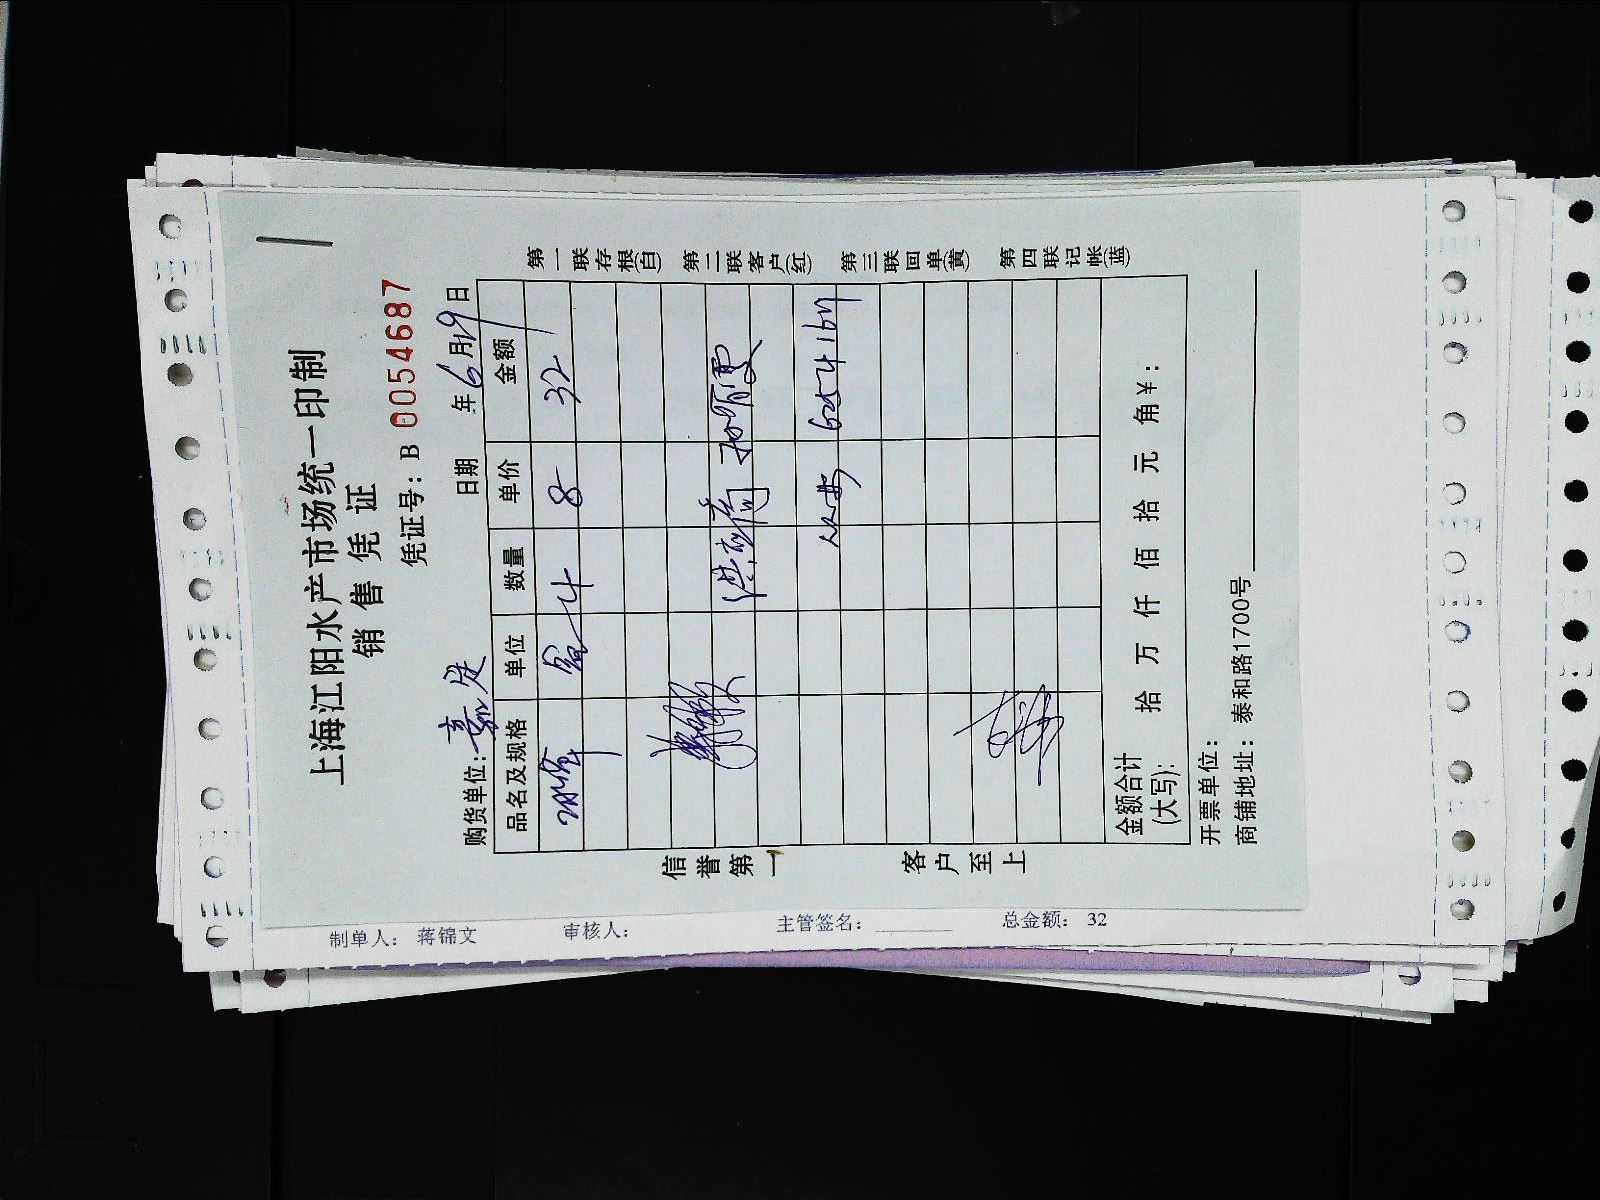 上海江阳水产市场统一印制
销售凭证
凭证号：B 0054687
购货单位： 日期 年6月19日
品名及规格 单位 数量 单价 金额
4 8 32
金额合计(大写)： 拾 万 仟 佰 拾 元 角 ¥：
开票单位：
商铺地址：泰和路1700号
信誉第一 客户至上
第一联存根(白) 第二联客户(红) 第三联回单(黄) 第四联记帐(蓝)
制单人： 蒋锦文 审核人： 主管签名： 总金额： 32